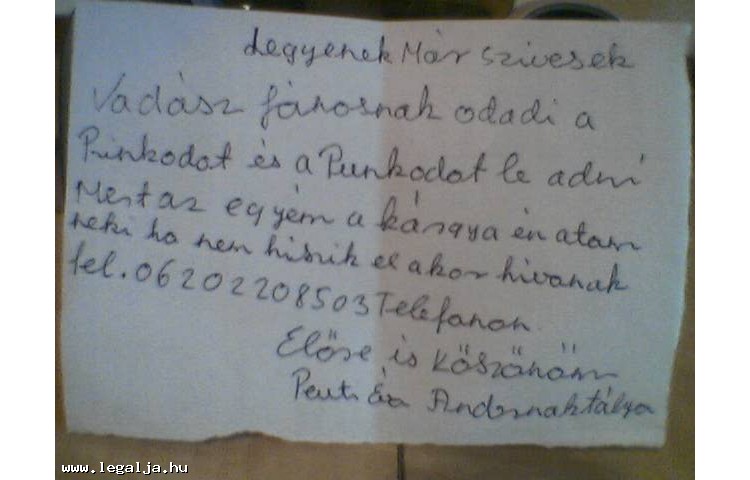 Legyenek Már szivesek
Vadász Jánosnak odadi a
Pinkodot és a Punkodot le adni
Mert az egyém a kárgya én atam
neki ha nem hiszik el akor hivanak
tel. 06202208503 Telefanon
Előre is Köszönöm
Peuti Éva Andornaktálya
www.legalja.hu